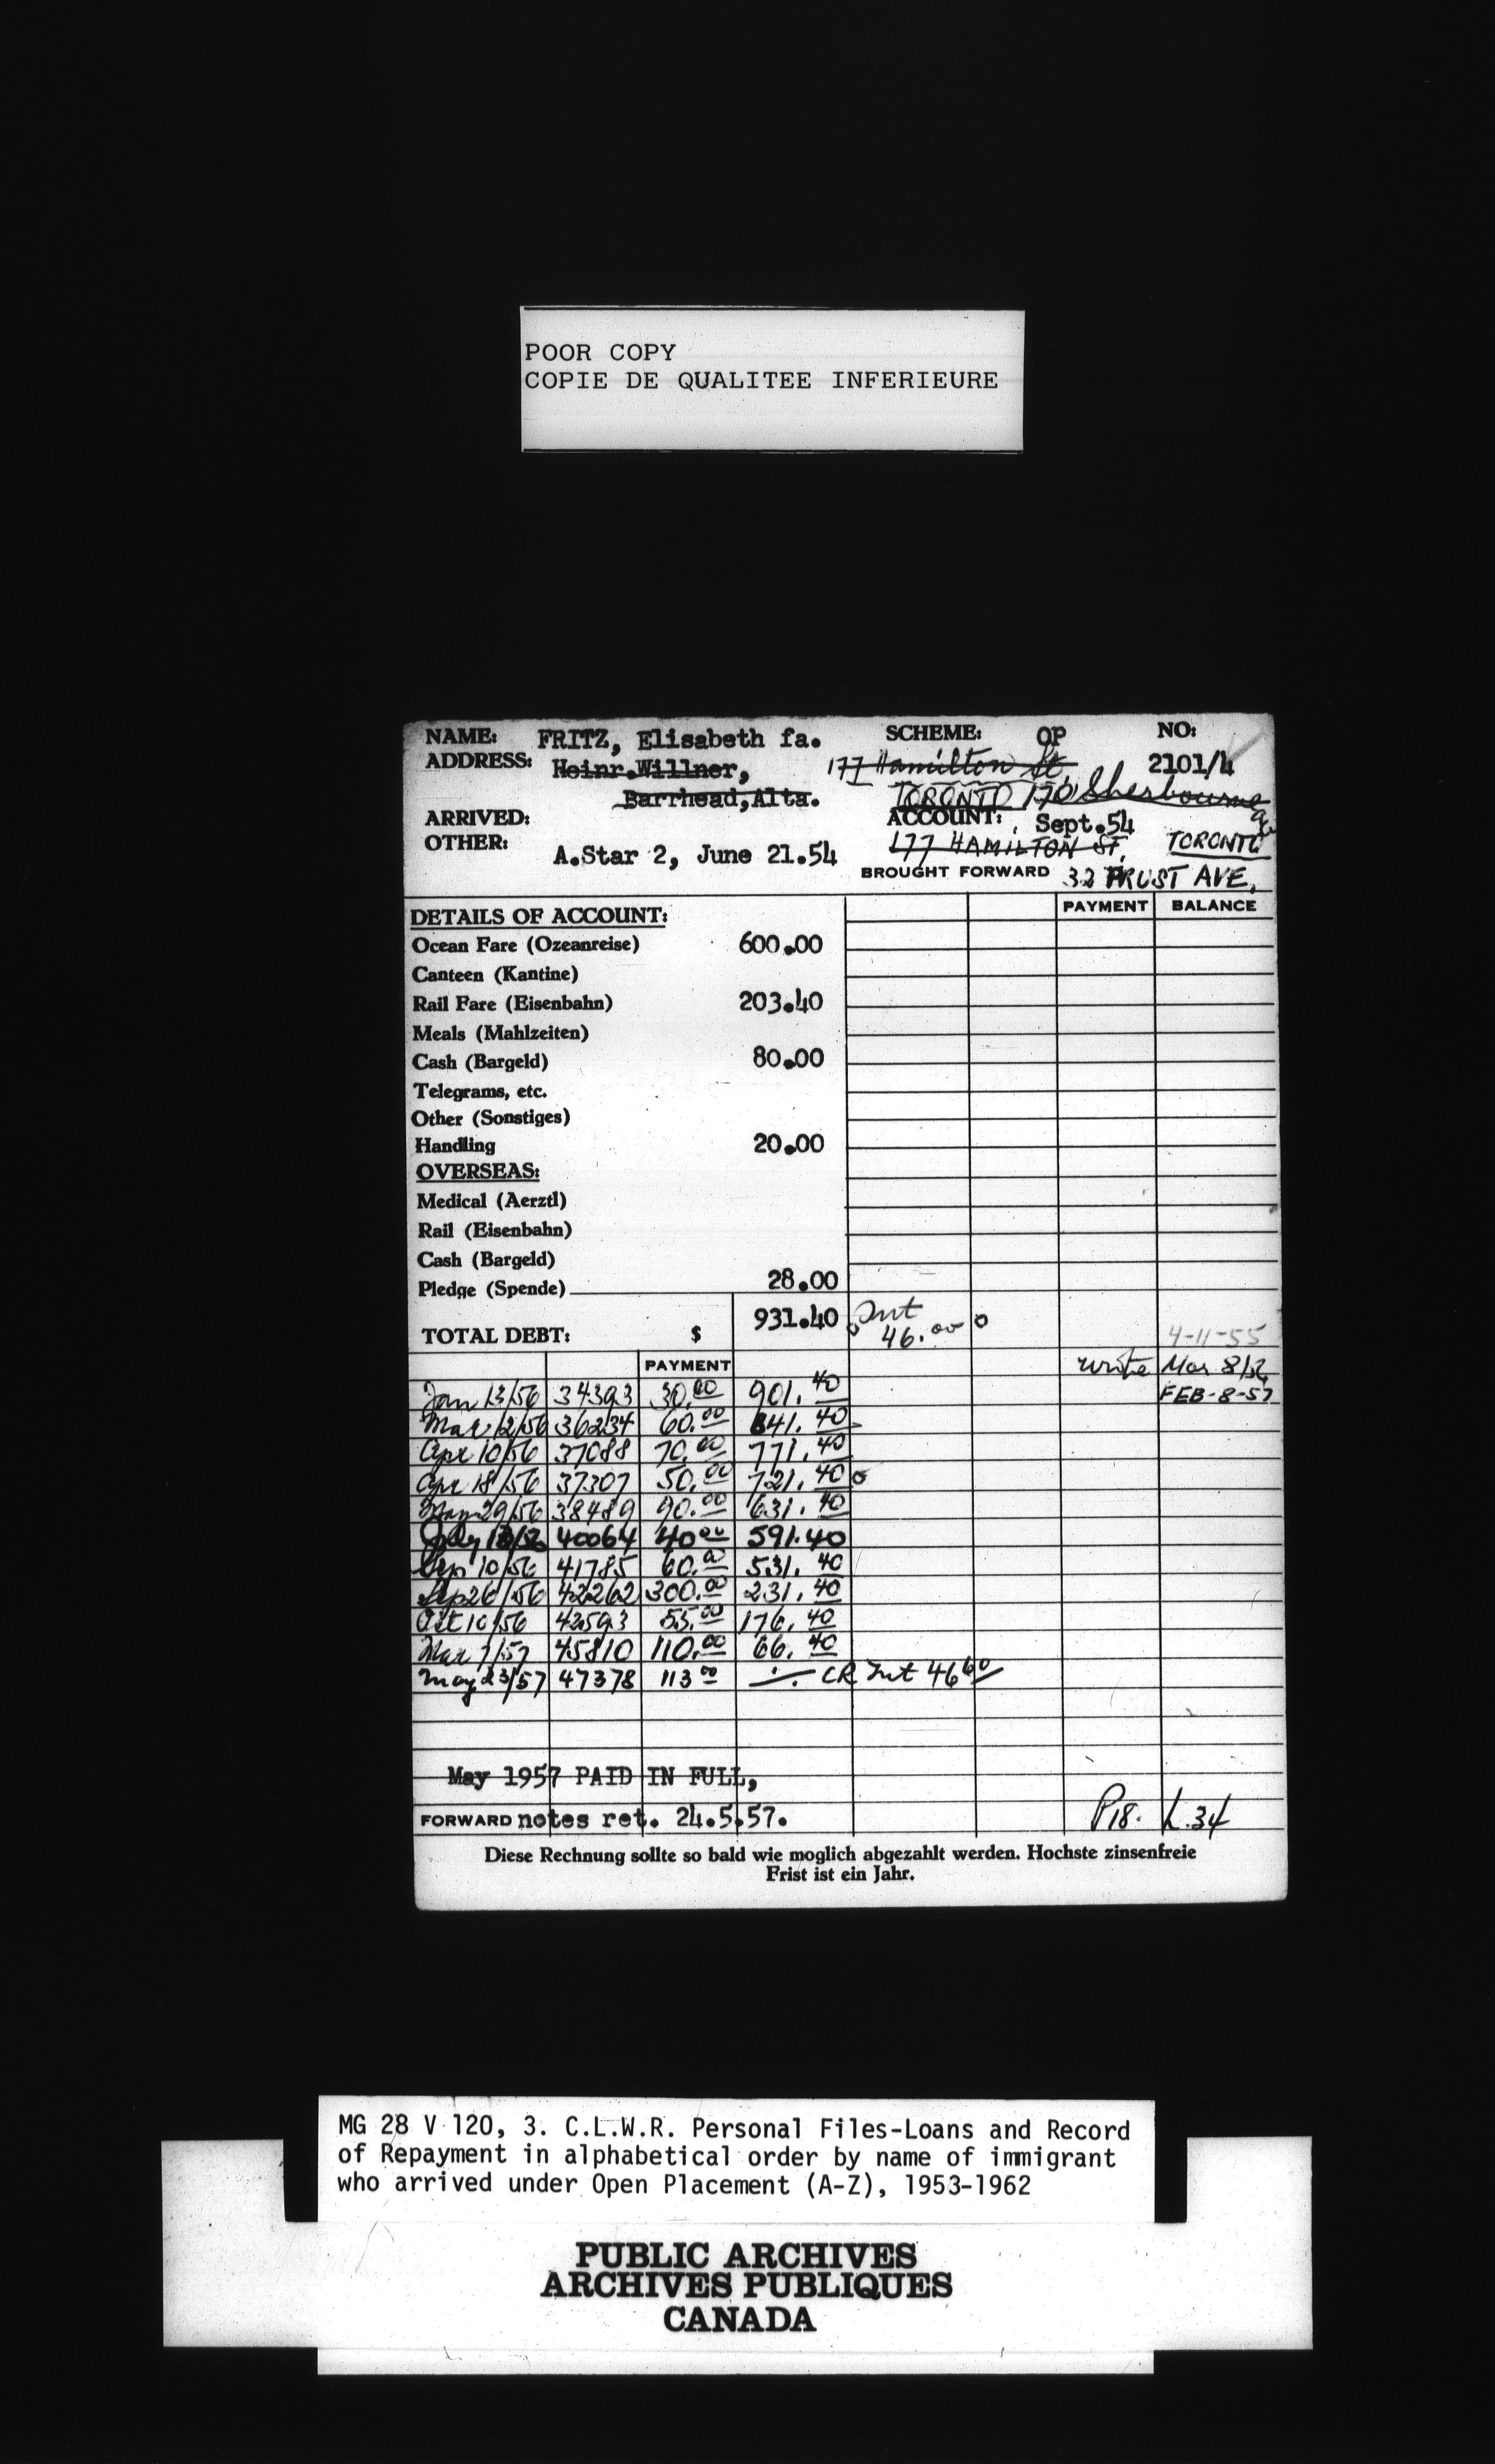 POOR COPY
COPIE DE QUALITEE INFERIEURE
NAME: FRITZ, Elisabeth fa. SCHEME: OP NO:
ADDRESS: Heinr.Willner, 177 Hamilton St, 2101/4
Barrhead,Alta. TORONTO 170 Sherbourne
ARRIVED: ACCOUNT: Sept.54
OTHER: A.Star 2, June 21.54 177 HAMILTON ST, TORONTO
BROUGHT FORWARD 32 TRUST AVE,
DETAILS OF ACCOUNT: PAYMENT BALANCE
Ocean Fare (Ozeanreise) 600.00
Canteen (Kantine)
Rail Fare (Eisenbahn) 203.40
Meals (Mahlzeiten)
Cash (Bargeld) 80.00
Telegrams, etc.
Other (Sonstiges)
Handling 20.00
OVERSEAS:
Medical (Aerztl)
Rail (Eisenbahn)
Cash (Bargeld)
Pledge (Spende) 28.00
TOTAL DEBT: $ 931.40 Int 46.00 4-11-55
PAYMENT write Mar 8/56
Jan 13/56 34393 30.00 901.40 FEB-8-57
Mar 12/56 36234 60.00 841.40
Apr 10/56 37088 70.00 771.40
Apr 18/56 37307 50.00 721.40
May 29/56 38489 90.00 631.40
July 40064 40.00 591.40
Sep 10/56 41785 60.00 531.40
Sep 26/56 42262 300.00 231.40
Oct 10/56 42593 55.00 176.40
Mar 7/57 45810 110.00 66.40
May 23/57 47378 113.00 CR Int 46.60
May 1957 PAID IN FULL,
FORWARD notes ret. 24.5.57. P18. L.34
Diese Rechnung sollte so bald wie moglich abgezahlt werden. Hochste zinsenfreie
Frist ist ein Jahr.
MG 28 V 120, 3. C.L.W.R. Personal Files-Loans and Record
of Repayment in alphabetical order by name of immigrant
who arrived under Open Placement (A-Z), 1953-1962
PUBLIC ARCHIVES
ARCHIVES PUBLIQUES
CANADA